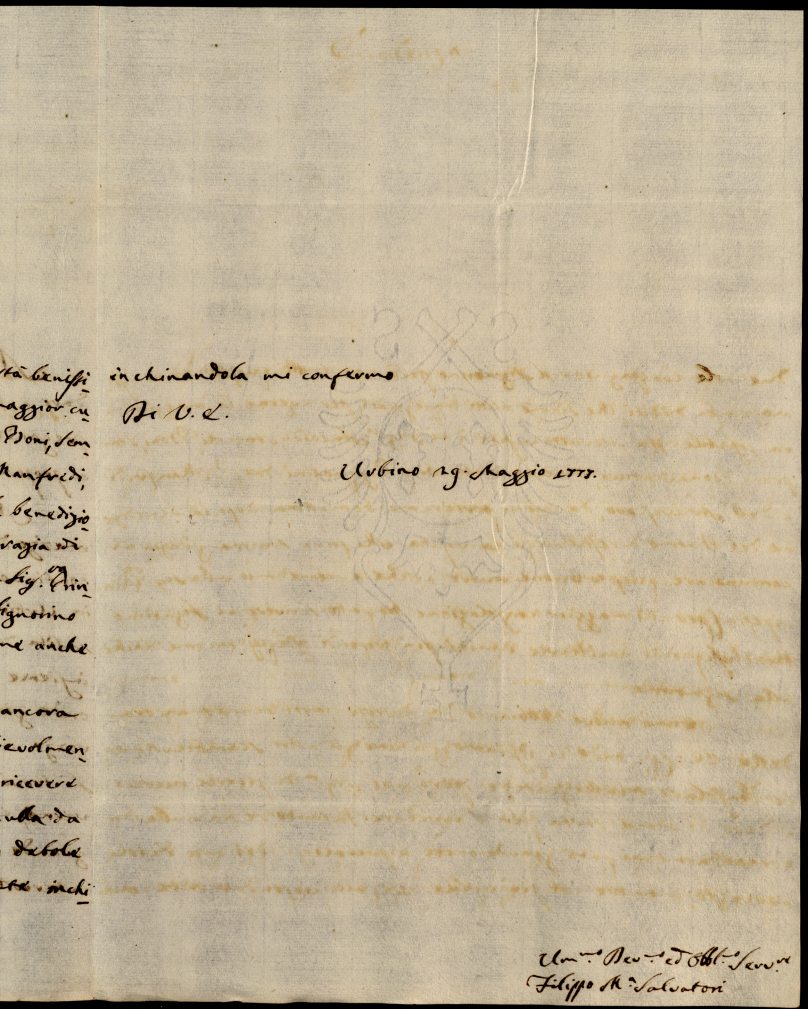 stà benissi
maggior cu
Boni, sem
Manfredi,
benedizio
di
Sig.ra Prin
Signorino
me anche
ancora
ievolmen
ricevere
nulla da
debole
inchi
inchinandola mi confermo
Di V. E.
Urbino 29. Maggio 1777.
Um.mo Dev.mo ed Obbl.o Serv.re
Filippo M.a Salvatori